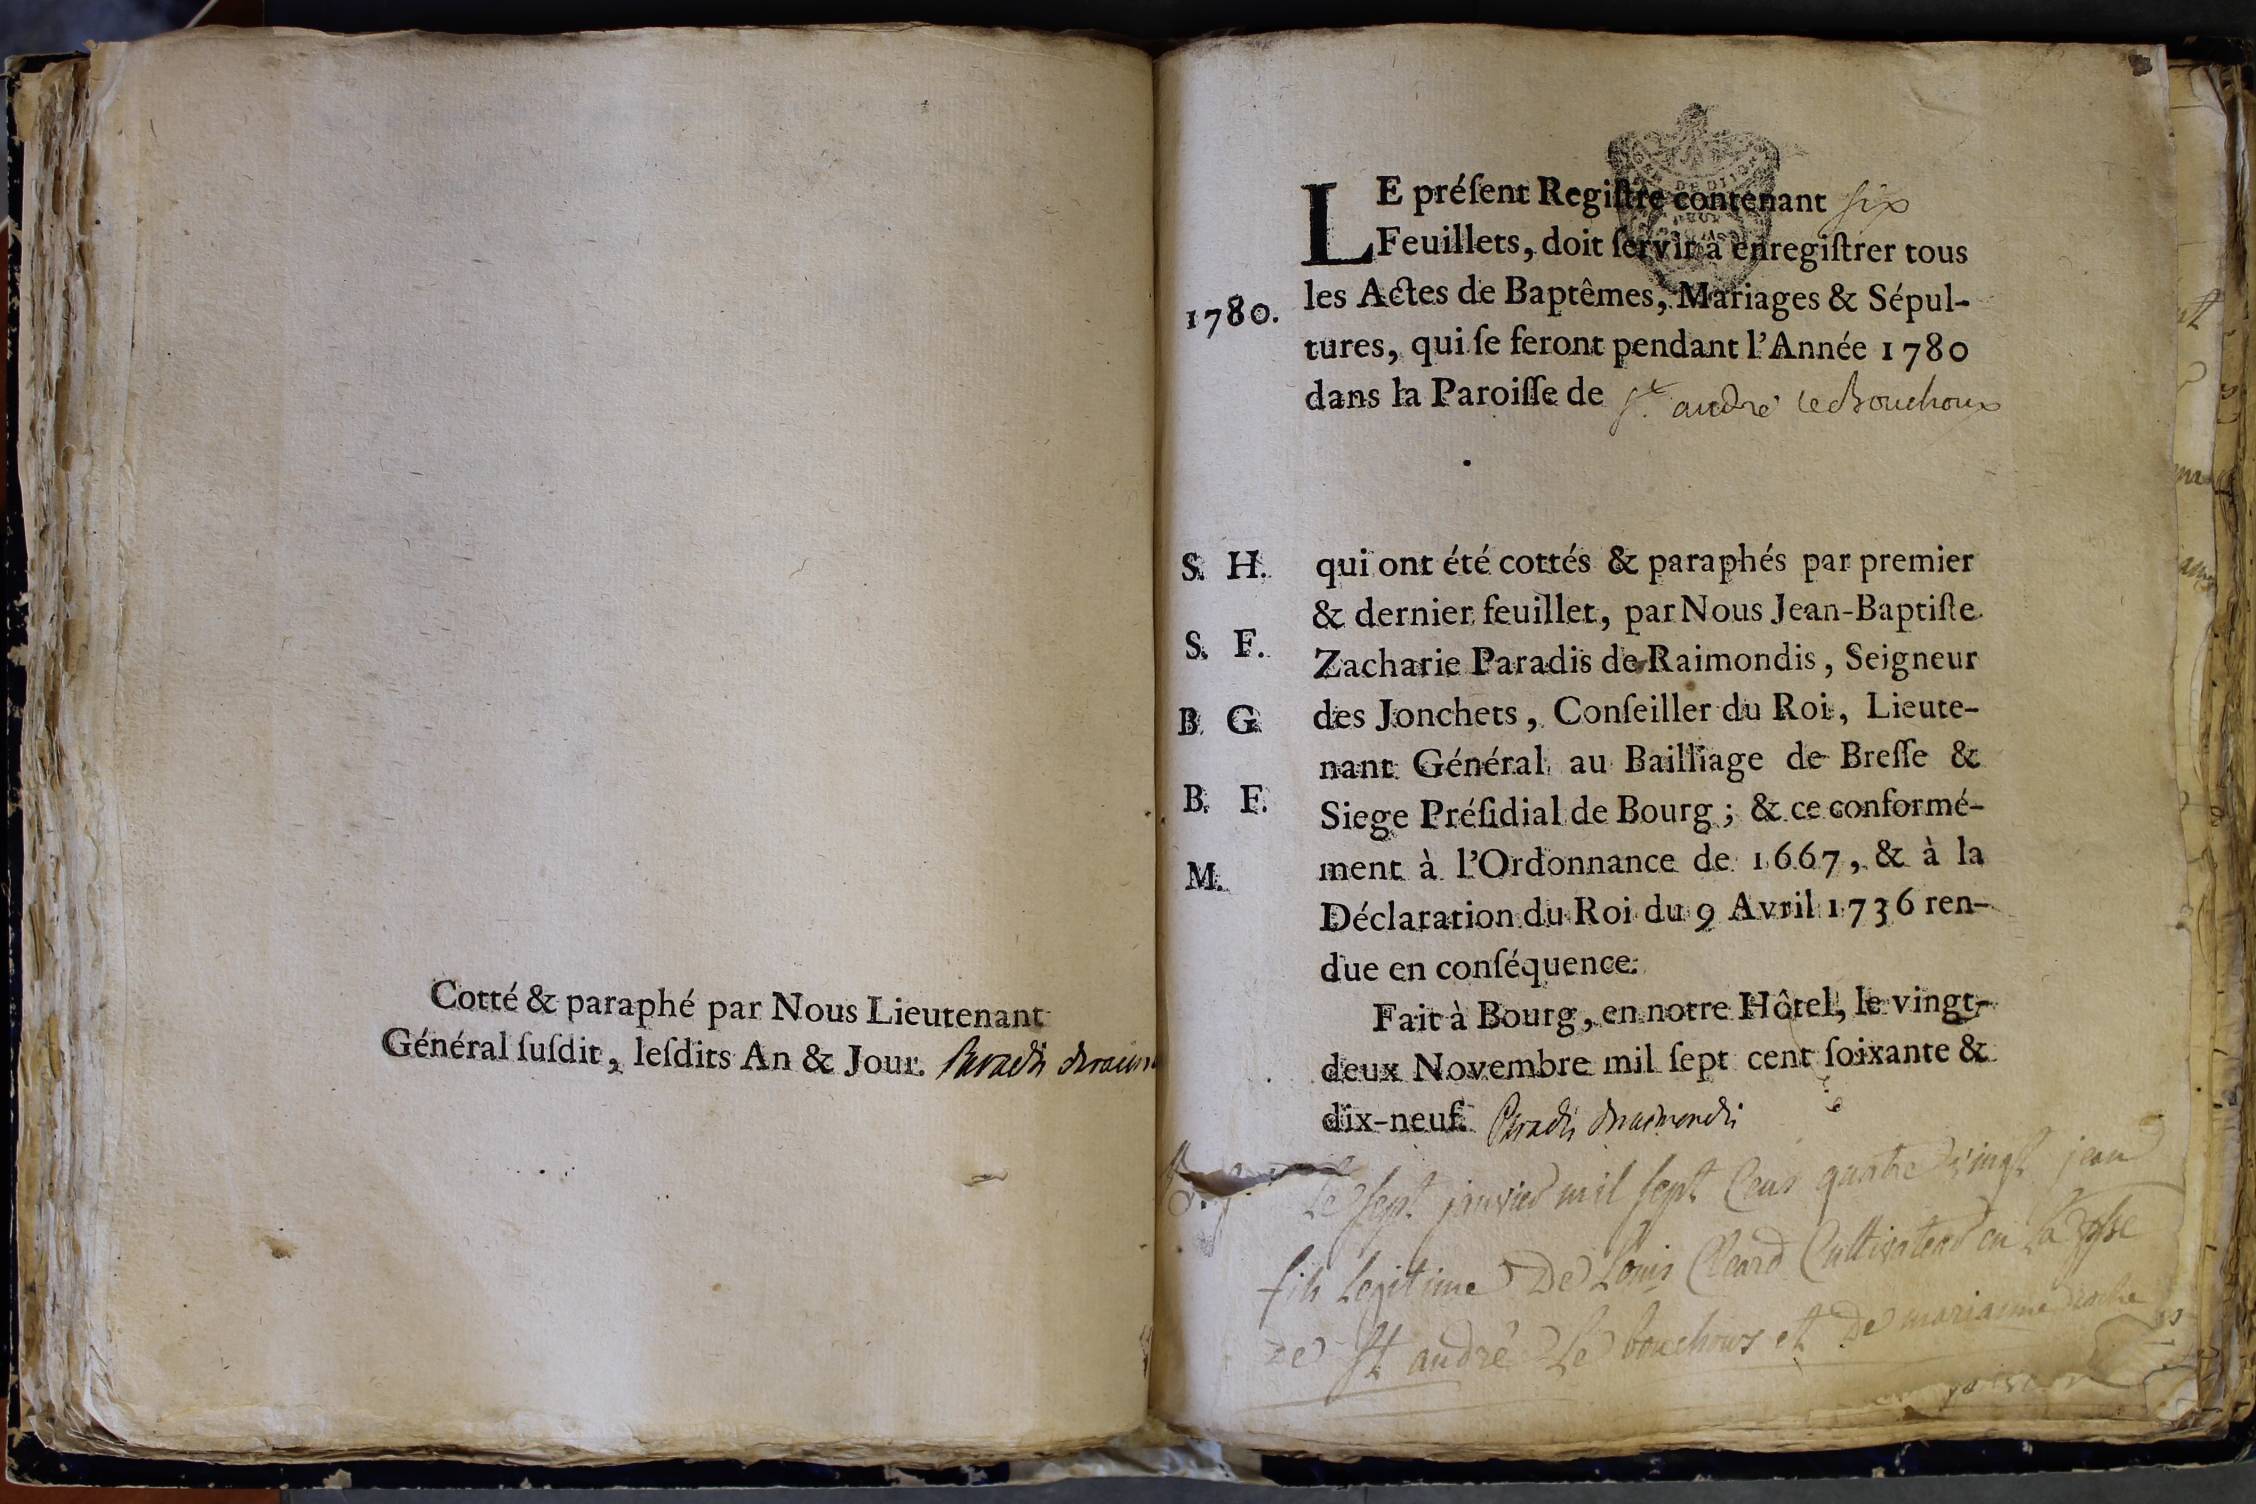 Cotté & paraphé par Nous Lieutenant
Général ſuſdit, leſdits An & Jour. Paradis
LE préſent Regiſtre contenant six
Feuillets, doit ſervir à enregiſtrer tous
les Actes de Baptêmes, Mariages & Sépul-
1780.
tures, qui ſe feront pendant l'Année 1780
dans la Paroiſſe de St. andré le Bouchoux
S. H.
qui ont été cottés & paraphés par premier
& dernier feuillet, par Nous Jean-Baptiſte
S. F.
Zacharie Paradis de Raimondis, Seigneur
B G
des Jonchets, Conſeiller du Roi, Lieute-
nant Général au Bailliage de Breſſe &
B. F.
Siege Préſidial de Bourg; & ce conformé-
ment à l'Ordonnance de 1667, & à la
M.
Déclaration du Roi du 9 Avril 1736 ren-
due en conſéquence.
Fait à Bourg, en notre Hôtel, le vingt-
deux Novembre mil ſept cent ſoixante &
dix-neuf. Paradis deraimondis
Le sept janvier mil sept cens quatre vingt jean
fils legitime De Louis Cultivateur en la
de St andré Le bouchoux et De marianne